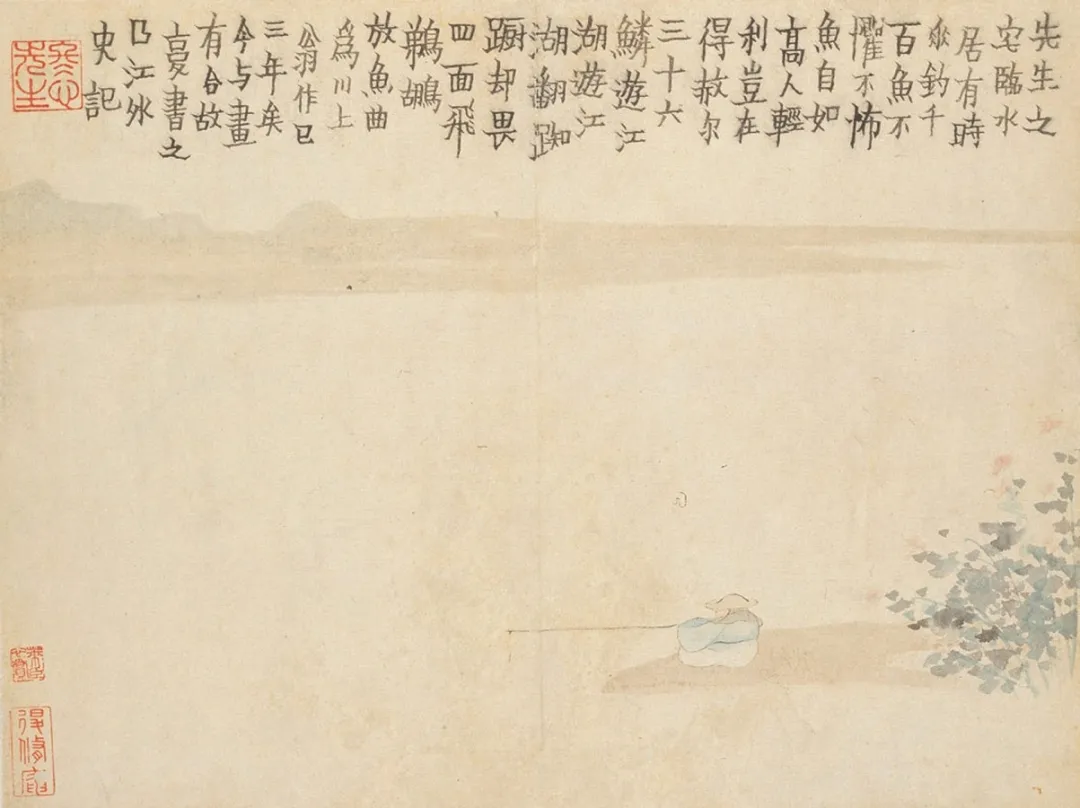 先生之
宅臨水
居有時
垂釣千
百魚不
懼不怖
魚自如
髙人輕
利豈在
得赦尔
三十六
鱗遊江
湖遊江
湖翻踟
蹰却畏
四面飛
鵜鶘
放魚曲
爲川上
翁作已
三年矣
今与畫
有合故
書之
曲江外
史記
冬心先生